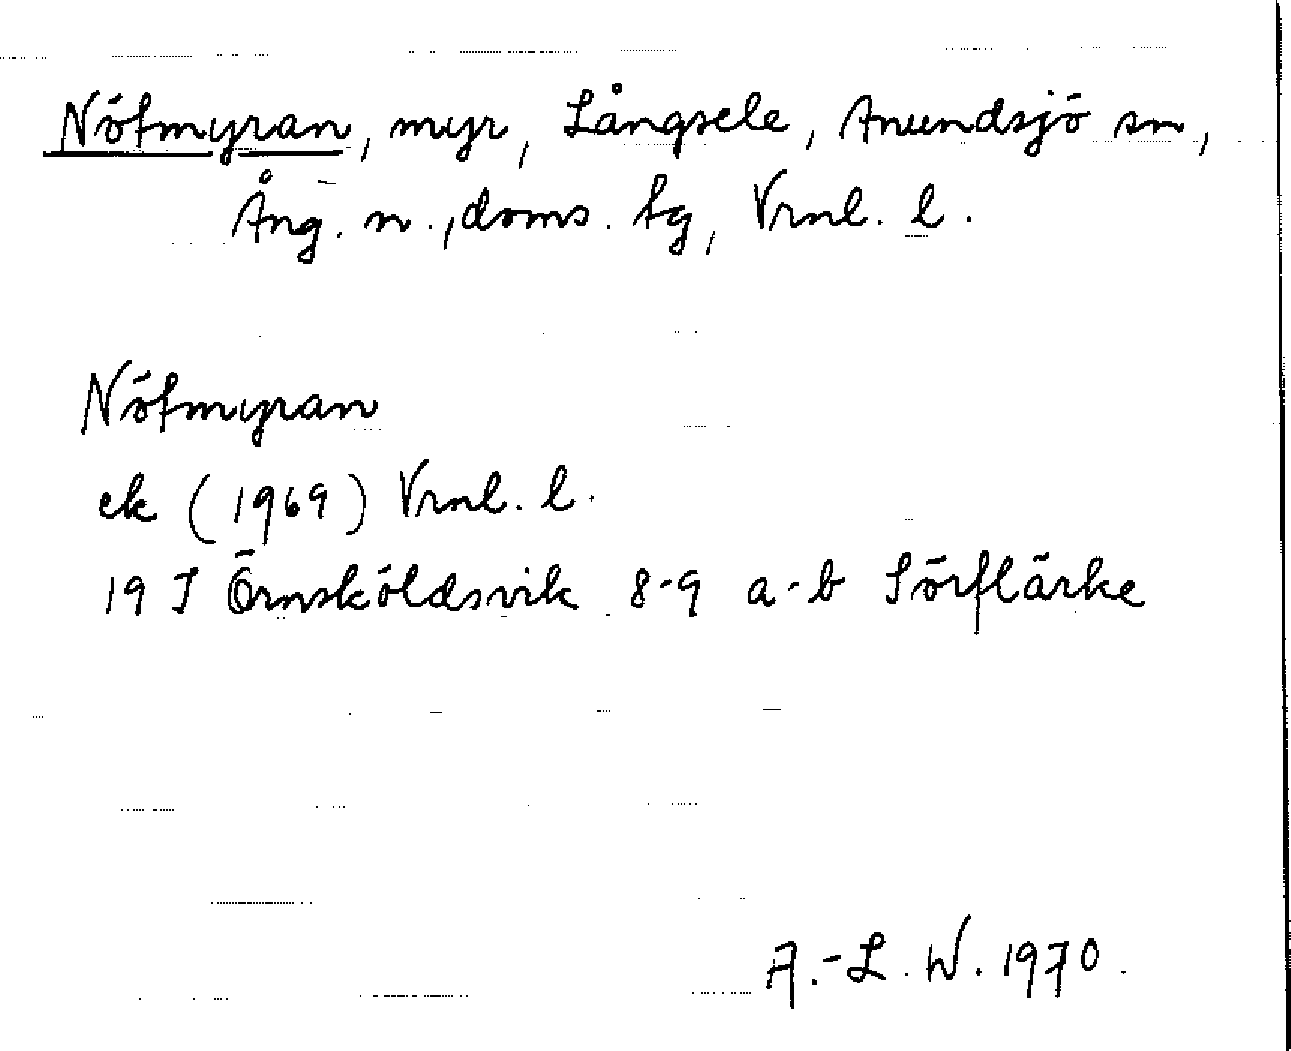 Nötmyran, myr, Långsele, Anundsjö sn,
Ång. n., doms. tg, Vrnl. l.
Nötmyran
ek (1969) Vrnl. l.
19 J Örnsköldsvik 8-9 a-b Sörflärke
A.-L. W. 1970.